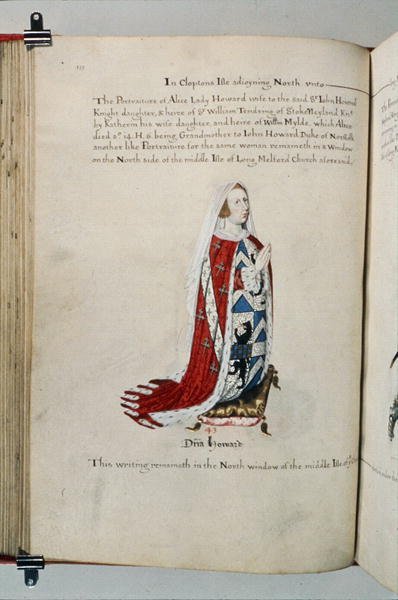 In Cloptons Isle adioyning North vnto
The Portraiture of Alice Lady Howard wife to the said Sr Iohn Howard
Knight daughter, & heire of Sr William Tendring of StokeNeyland Knt
by Katherin his wife daughter, and heire of Willm Mylde, which Alice
died ao 14. H. 6. being Grandmother to Iohn Howard Duke of Norfolk
another like Portraiture for the same woman remaineth in a Window
on the North side of the middle Isle of Long Melford Church aforesaid.
43
Dña Howard
This writing remaineth in the North window of the middle Isle of